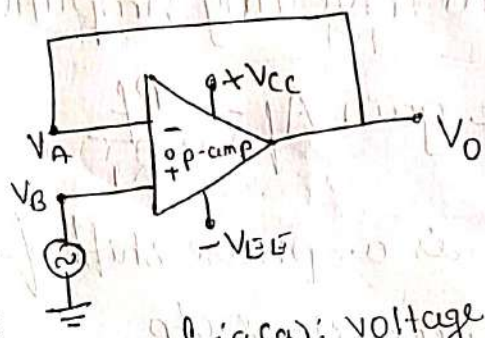 +VCC
VA
−
op-amp
+
VO
VB
−VEE
voltage